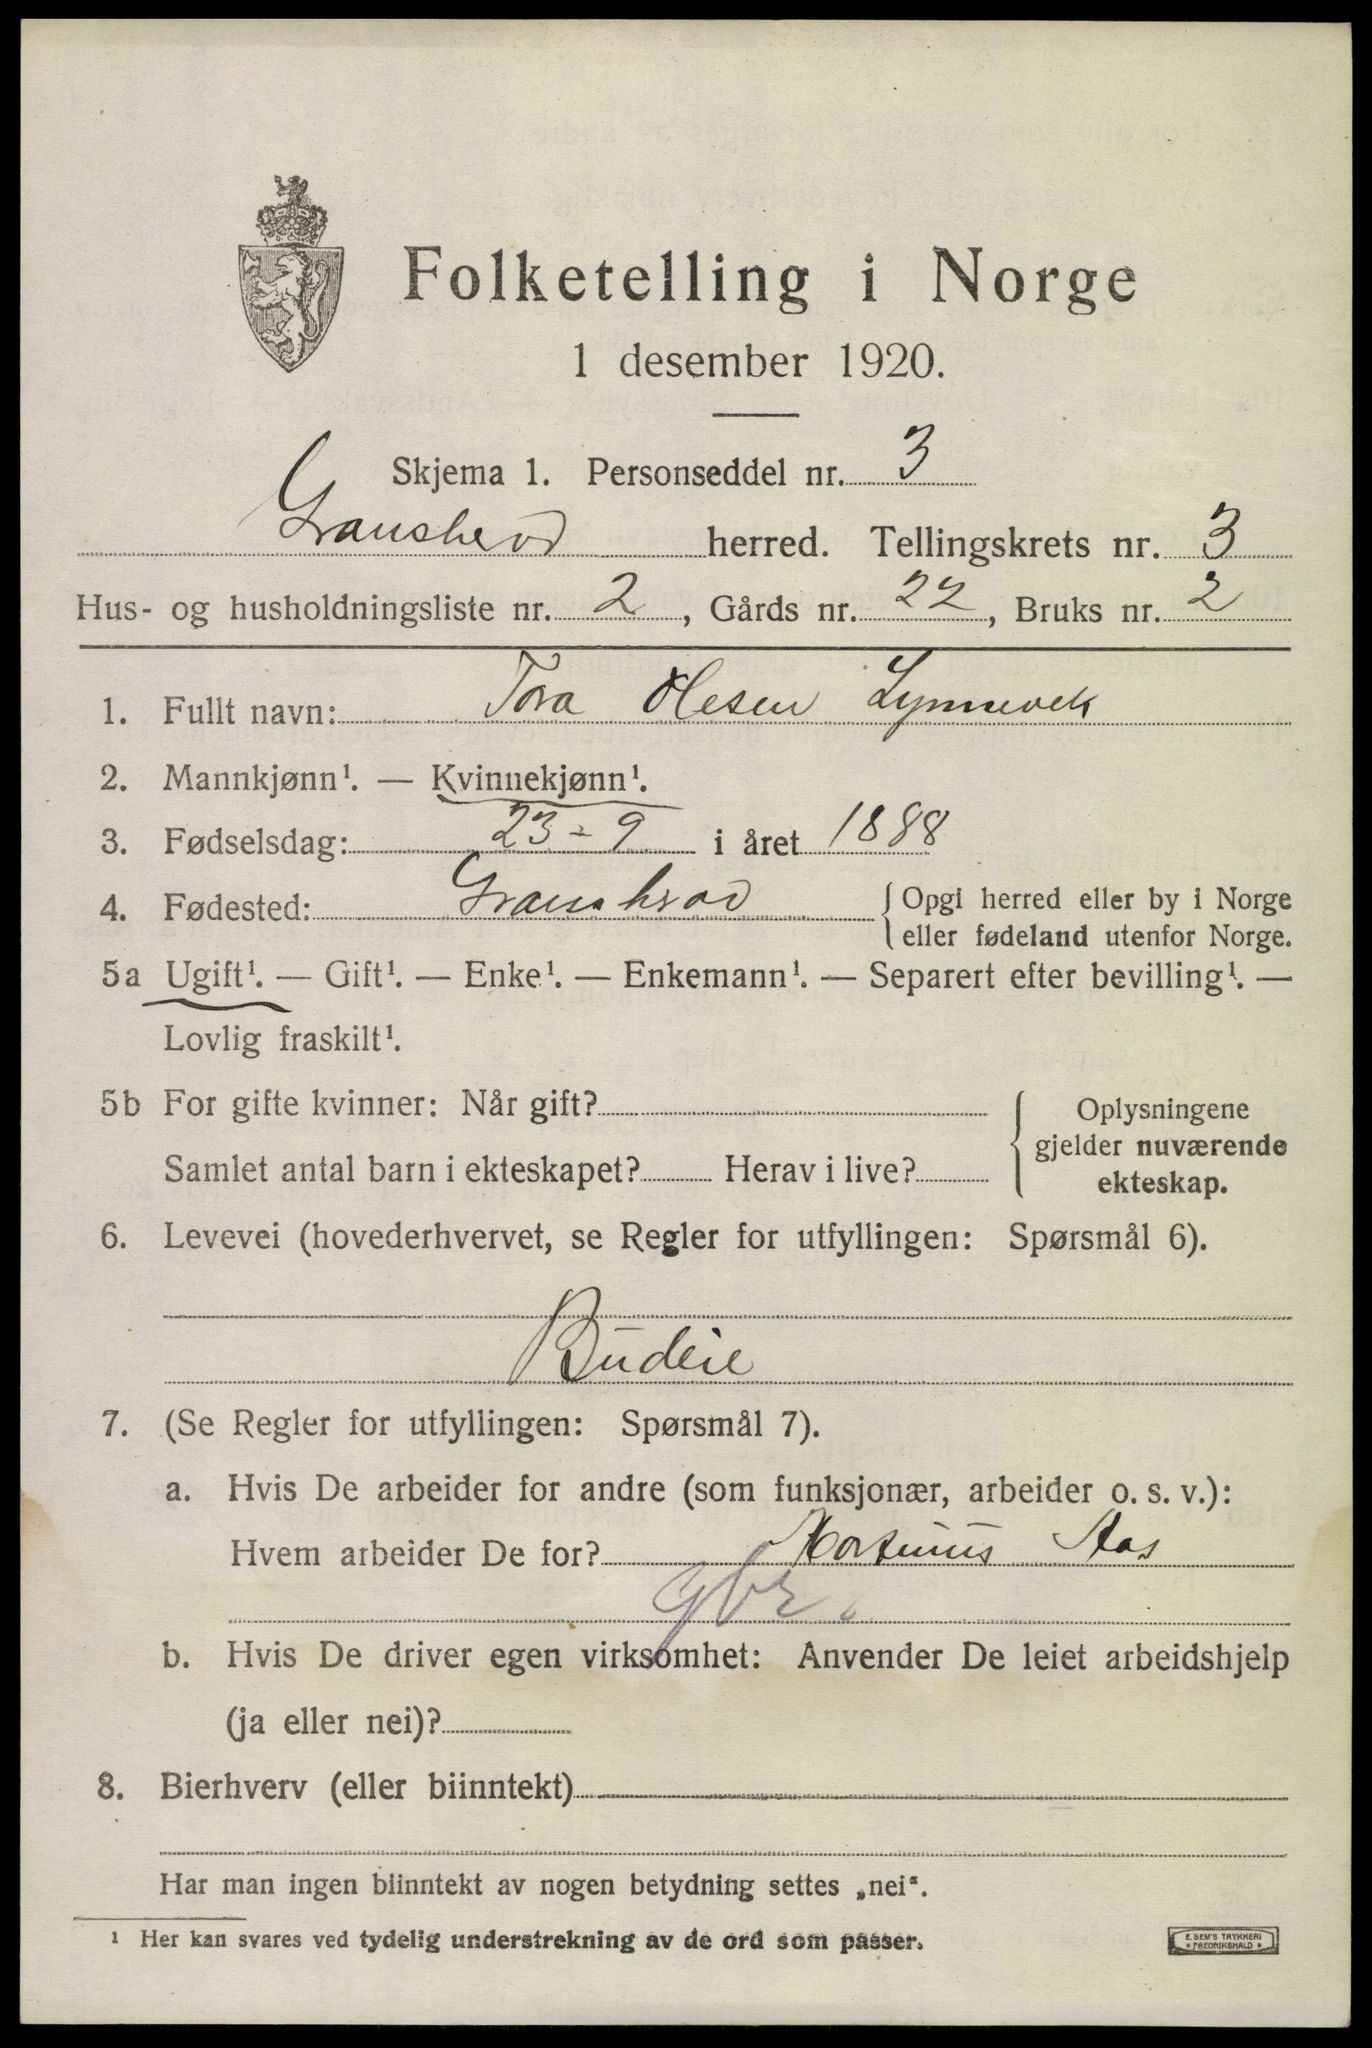 Folketelling i Norge
1 desember 1920.
Skjema 1. Personseddel nr. 3
Gransherod herred. Tellingskrets nr. 3
Hus- og husholdningsliste nr. 2, Gårds nr. 22, Bruks nr. 2
1. Fullt navn: Tora Olesen
2. Mannkjønn¹. — Kvinnekjønn¹.
3. Fødselsdag: 23-9 i året 1888
4. Fødested: Gransherod { Opgi herred eller by i Norge
eller fødeland utenfor Norge.
5a Ugift¹. — Gift¹. — Enke¹. — Enkemann¹. — Separert efter bevilling¹. —
Lovlig fraskilt¹.
5b For gifte kvinner: Når gift?
Samlet antal barn i ekteskapet? Herav i live?
{ Oplysningene
gjelder nuværende
ekteskap.
6. Levevei (hovederhvervet, se Regler for utfyllingen: Spørsmål 6).
Budeie
7. (Se Regler for utfyllingen: Spørsmål 7).
a. Hvis De arbeider for andre (som funksjonær, arbeider o. s. v.):
Hvem arbeider De for? Martinus Aas
gbr.
b. Hvis De driver egen virksomhet: Anvender De leiet arbeidshjelp
(ja eller nei)?
8. Bierhverv (eller biinntekt)
Har man ingen biinntekt av nogen betydning settes „nei".
¹ Her kan svares ved tydelig understrekning av de ord som passer.
E. SEM'S TRYKKERI
• FREDRIKSHALD •